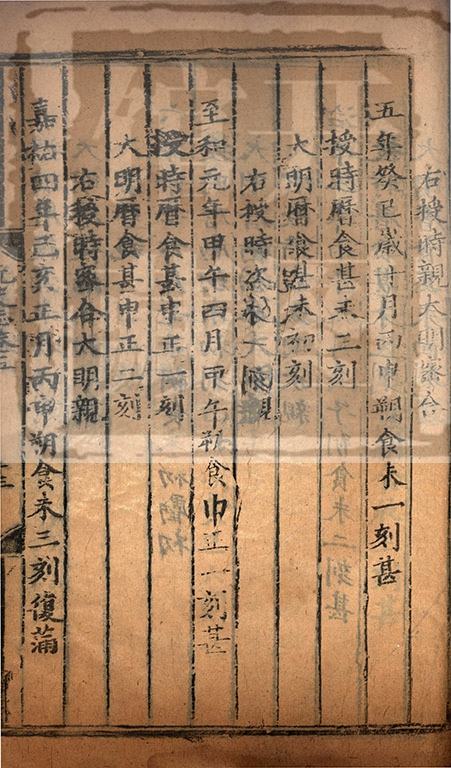 右授時親大明審合
五年癸巳歲十月丙申朔食未一刻甚
授時曆食甚未三刻
大明曆食甚未初刻
右授時次親大明親
至和元年甲午四月甲午朔食申正一刻甚
授時曆食甚申正一刻
大明曆食甚申正二刻
右授時審合大明親
嘉祐四年己亥正月丙申朔食未三刻復蒲